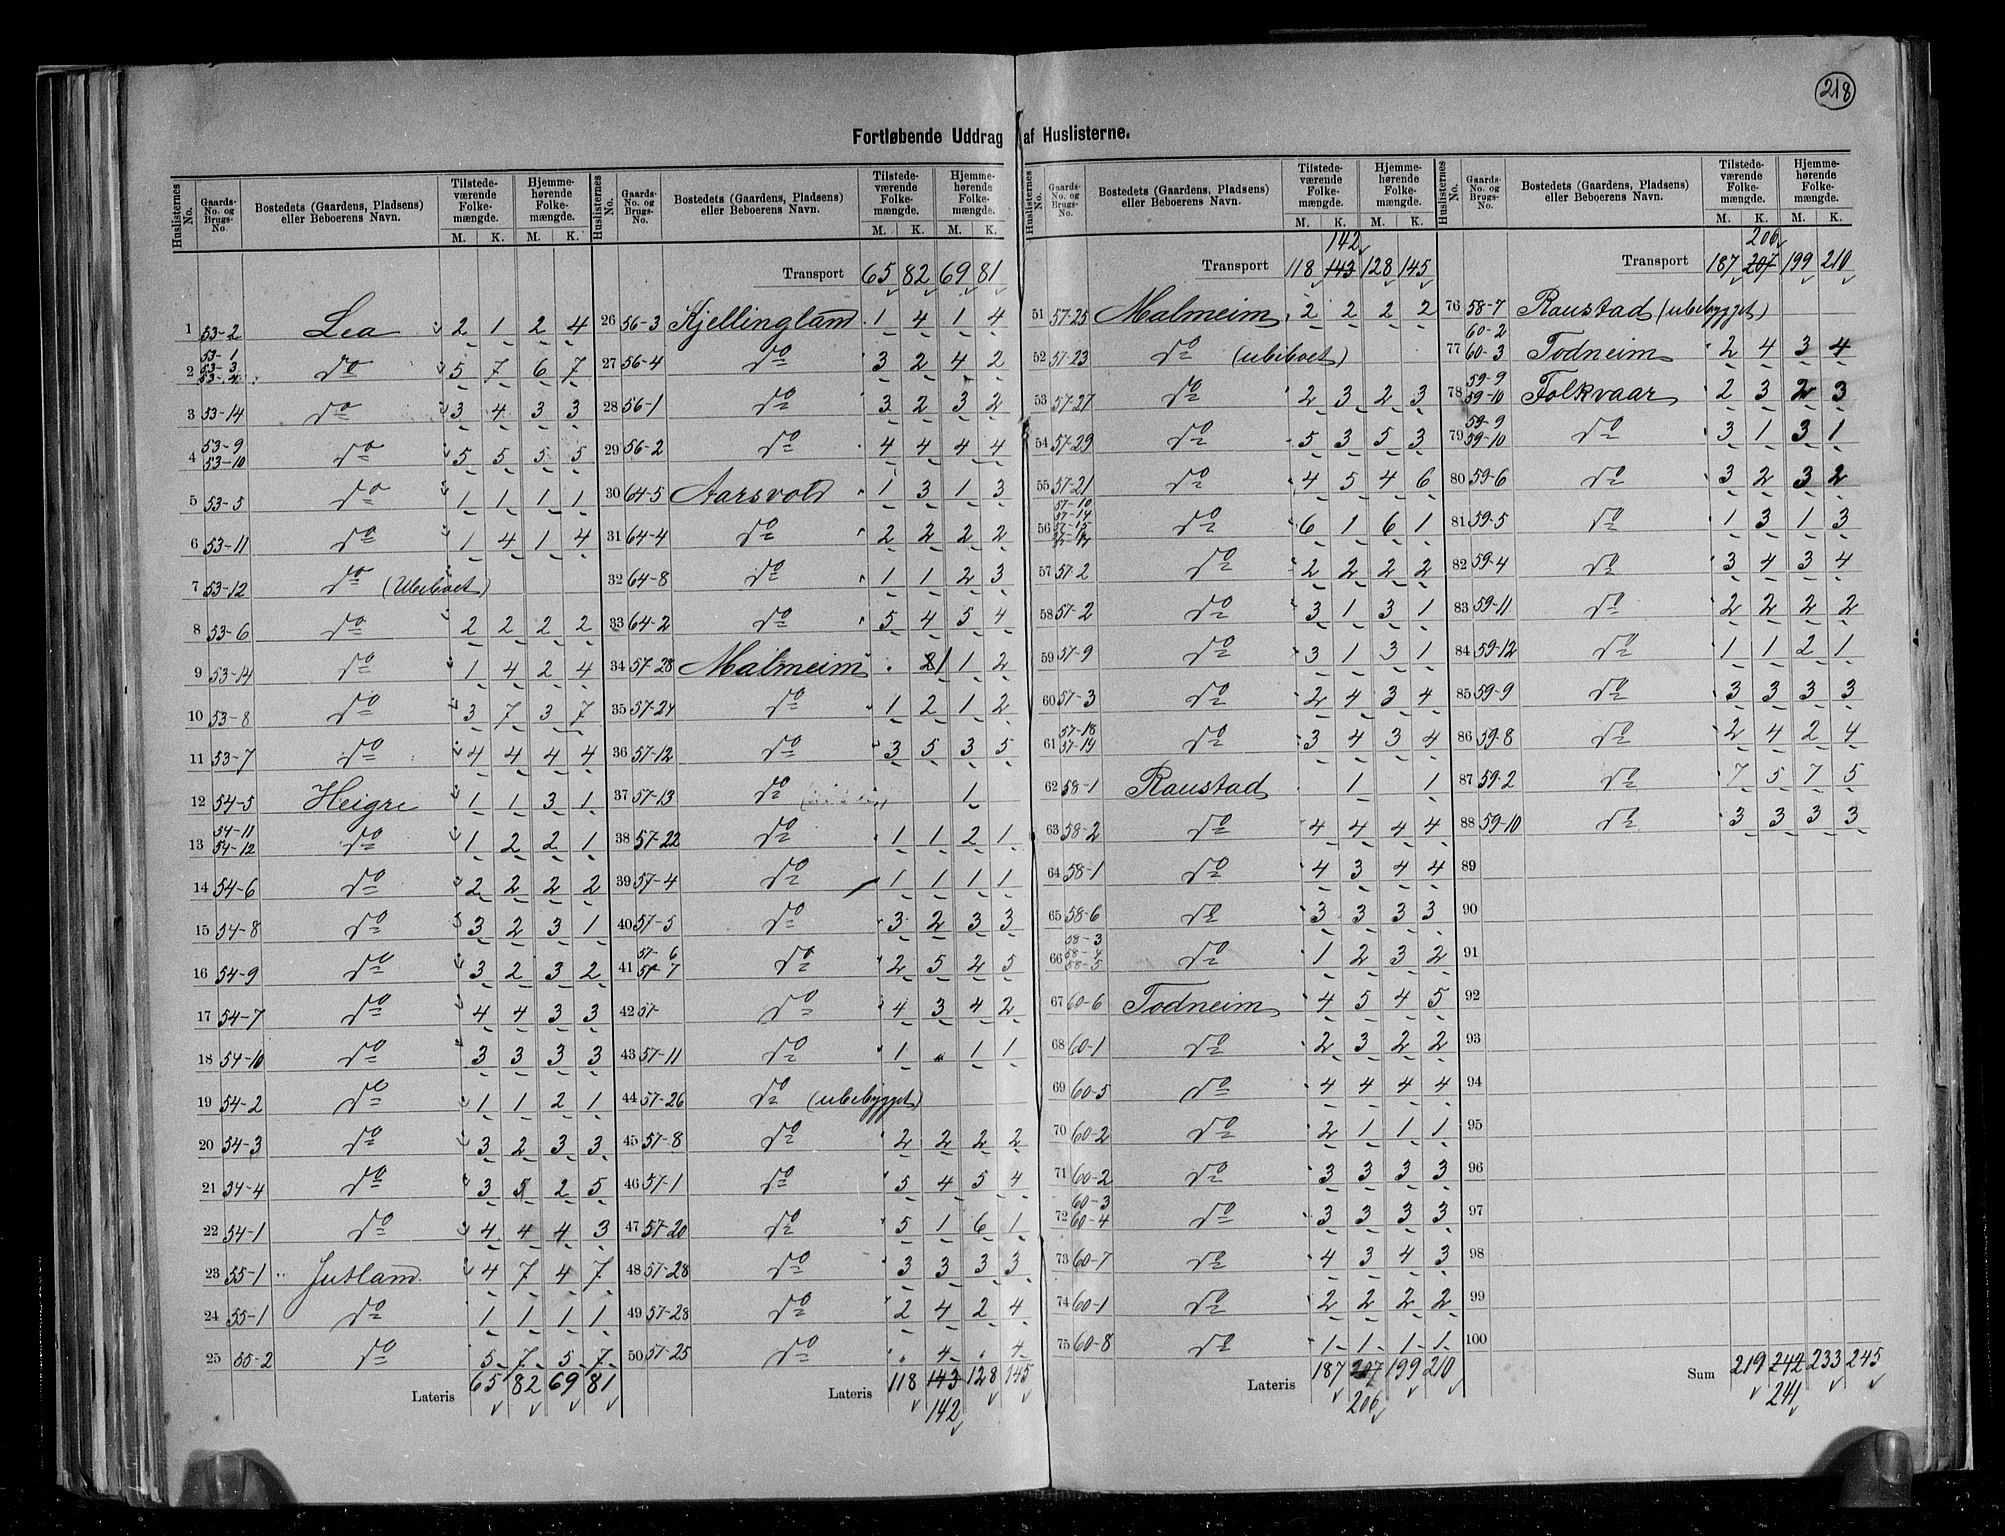 218
Fortløbende Uddrag af Huslisterne.
Huslisternes No. | Gaards-No. og Brugs-No. | Bostedets (Gaardens, Pladsens) eller Beboerens Navn. | Tilstedeværende Folkemængde. M. K. | Hjemmehørende Folkemængde. M. K.
1 53-2 Lea 2 1 2 4
2 53-1 53-3 53-4 do 5 7 6 7
3 53-14 do 3 4 3 3
4 53-9 53-10 do 5 5 5 5
5 53-5 do 1 1 1 1
6 53-11 do 1 4 1 4
7 53-12 do (Ubeboet)
8 53-6 do 2 2 2 2
9 53-14 do 1 4 2 4
10 53-8 do 3 7 3 7
11 53-7 do 4 4 4 4
12 54-5 Heigre 1 1 3 1
13 54-11 54-12 do 1 2 2 1
14 54-6 do 2 2 2 2
15 54-8 do 3 2 3 1
16 54-9 do 3 2 3 2
17 54-7 do 4 4 3 3
18 54-10 do 3 3 3 3
19 54-2 do 1 1 2 1
20 54-3 do 3 2 3 3
21 54-4 do 3 5 2 5
22 54-1 do 4 4 4 3
23 55-1 Jutland 4 7 4 7
24 55-1 do 1 1 1 1
25 55-2 do 5 7 5 7
Lateris 65 82 69 81
Huslisternes No. | Gaards-No. og Brugs-No. | Bostedets (Gaardens, Pladsens) eller Beboerens Navn. | Tilstedeværende Folkemængde. M. K. | Hjemmehørende Folkemængde. M. K.
Transport 65 82 69 81
26 56-3 Kjellingland 1 4 1 4
27 56-4 do 3 2 4 2
28 56-1 do 3 2 3 2
29 56-2 do 4 4 4 4
30 64-5 Aarsvold 1 3 1 3
31 64-4 do 2 2 2 2
32 64-8 do 1 1 2 3
33 64-2 do 5 4 5 4
34 57-28 Malmeim . 1 1 2
35 57-24 do 1 2 1 2
36 57-12 do 3 5 3 5
37 57-13 do 1
38 57-22 do 1 1 2 1
39 57-4 do 1 1 1 1
40 57-5 do 3 2 3 3
41 57-6 57-7 do 2 5 2 5
42 57- do 4 3 4 2
43 57-11 do 1 " 1 1
44 57-26 do (ubebygget)
45 57-8 do 2 2 2 2
46 57-1 do 5 4 5 4
47 57-20 do 5 1 6 1
48 57-28 do 3 3 3 3
49 57-28 do 2 4 2 4
50 57-25 do " 4 " 4
Lateris 118 143 128 145
142
Huslisternes No. | Gaards-No. og Brugs-No. | Bostedets (Gaardens, Pladsens) eller Beboerens Navn. | Tilstedeværende Folkemængde. M. K. | Hjemmehørende Folkemængde. M. K.
142
Transport 118 143 128 145
51 57-25 Malmeim 2 2 2 2
52 57-23 do (ubeboet)
53 57-27 do 2 3 2 3
54 57-29 do 5 3 5 3
55 57-21 do 4 5 4 6
56 57-10 57-14 57-15 do 6 1 6 1
57 57-2 do 2 2 2 2
58 57-2 do 3 1 3 1
59 57-9 do 3 1 3 1
60 57-3 do 2 4 3 4
61 57-18 57-19 do 3 4 3 4
62 58-1 Raustad 1 1
63 58-2 do 4 4 4 4
64 58-1 do 4 3 4 4
65 58-6 do 3 3 3 3
66 58-3 58-4 58-5 do 1 2 3 2
67 60-6 Todneim 4 5 4 5
68 60-1 do 2 3 2 2
69 60-5 do 4 4 4 4
70 60-2 do 2 1 1 1
71 60-2 do 3 3 3 3
72 60-3 60-4 do 3 3 3 3
73 60-7 do 4 3 4 3
74 60-1 do 2 2 2 2
75 60-8 do 1 1 1 1
Lateris 187 207 199 210
206
Huslisternes No. | Gaards-No. og Brugs-No. | Bostedets (Gaardens, Pladsens) eller Beboerens Navn. | Tilstedeværende Folkemængde. M. K. | Hjemmehørende Folkemængde. M. K.
206
Transport 187 207 199 210
76 58-7 Raustad (ubebygget)
77 60-2 60-3 Todneim 2 4 3 4
78 59-9 59-10 Folkvaar 2 3 2 3
79 59-9 59-10 do 3 1 3 1
80 59-6 do 3 2 3 2
81 59-5 do 1 3 1 3
82 59-4 do 3 4 3 4
83 59-11 do 2 2 2 2
84 59-12 do 1 1 2 1
85 59-9 do 3 3 3 3
86 59-8 do 2 4 2 4
87 59-2 do 7 5 7 5
88 59-10 do 3 3 3 3
89
90
91
92
93
94
95
96
97
98
99
100
Sum 219 242 233 245
241